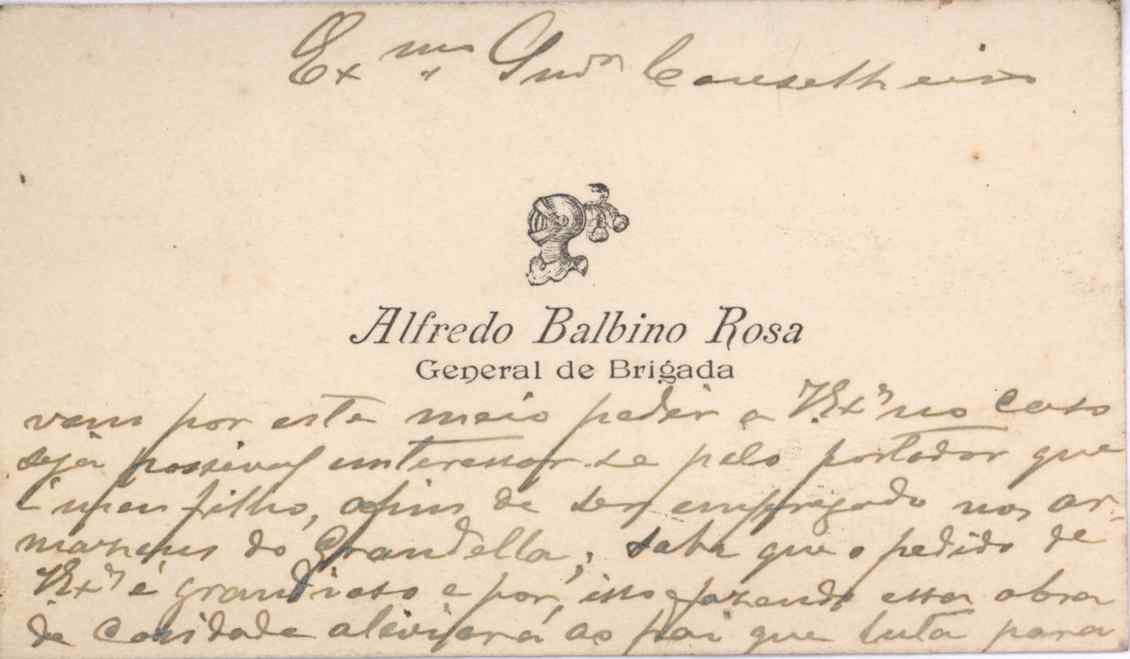 Exmo Snr Conselheiro
Alfredo Balbino Rosa
General de Brigada
vem por este meio pedir a V. Exa no caso
seja possivel interessar-se pelo portador que
é meu filho, afim de ser empregado nos ar-
mazens do Grandella, sabe que o pedido de
V. Exa é grandioso e por isso fazendo essa obra
de caridade aliviará ao pai que luta para